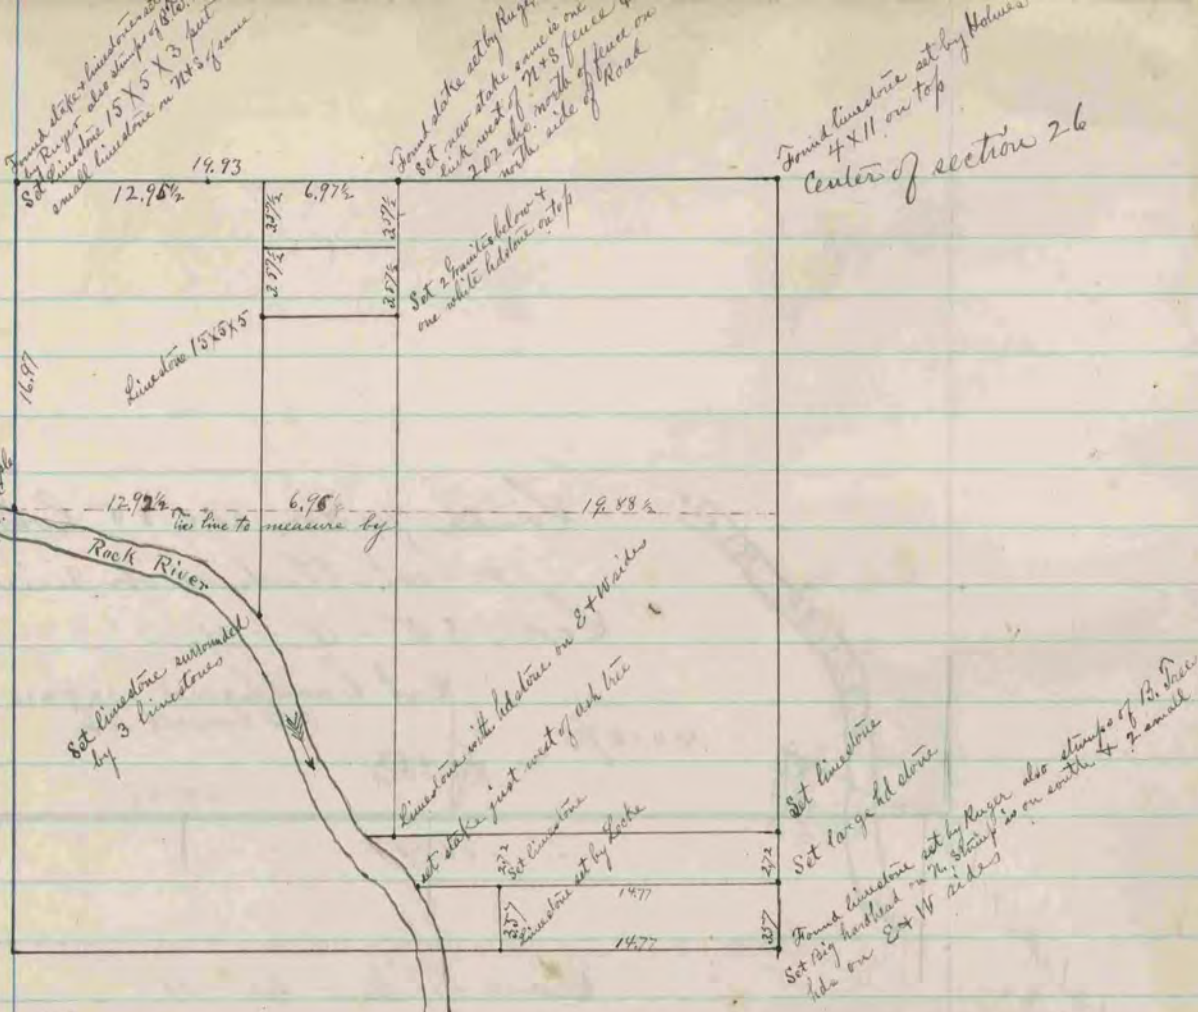 Found stake & limestone set
by Ruger also stumps of
Set Limestone 15 X 5 X 3 put
small limestone on N & S of same
Found stake set by Ruger
Set new stake same is one
link west of N & S fence &
202 north of fence on
north side of Road
Found limestone set by Holmes
4 X 11 on top
Center of section 26
19.93
12.95½
6.97½
257½
257½
257½
257½
Set 2 Granites below &
one white hdstone on top
Limestone 15X5X5
16.97
12.92½
6.96
19.88½
Tie line to measure by
Rock River
Set limestone surrounded
by 3 limestones
Limestone with hdstone on E & W sides
set stake just west of ash tree
Set limestone
Set large hd stone
272
Set limestone
272
14.77
257
Limestone set by Locke
14.77
257
Found limestone set by Ruger also stumps of B. Tree
Set Big hardhead on N. Stump is on south & 2 small
hds on E & W sides